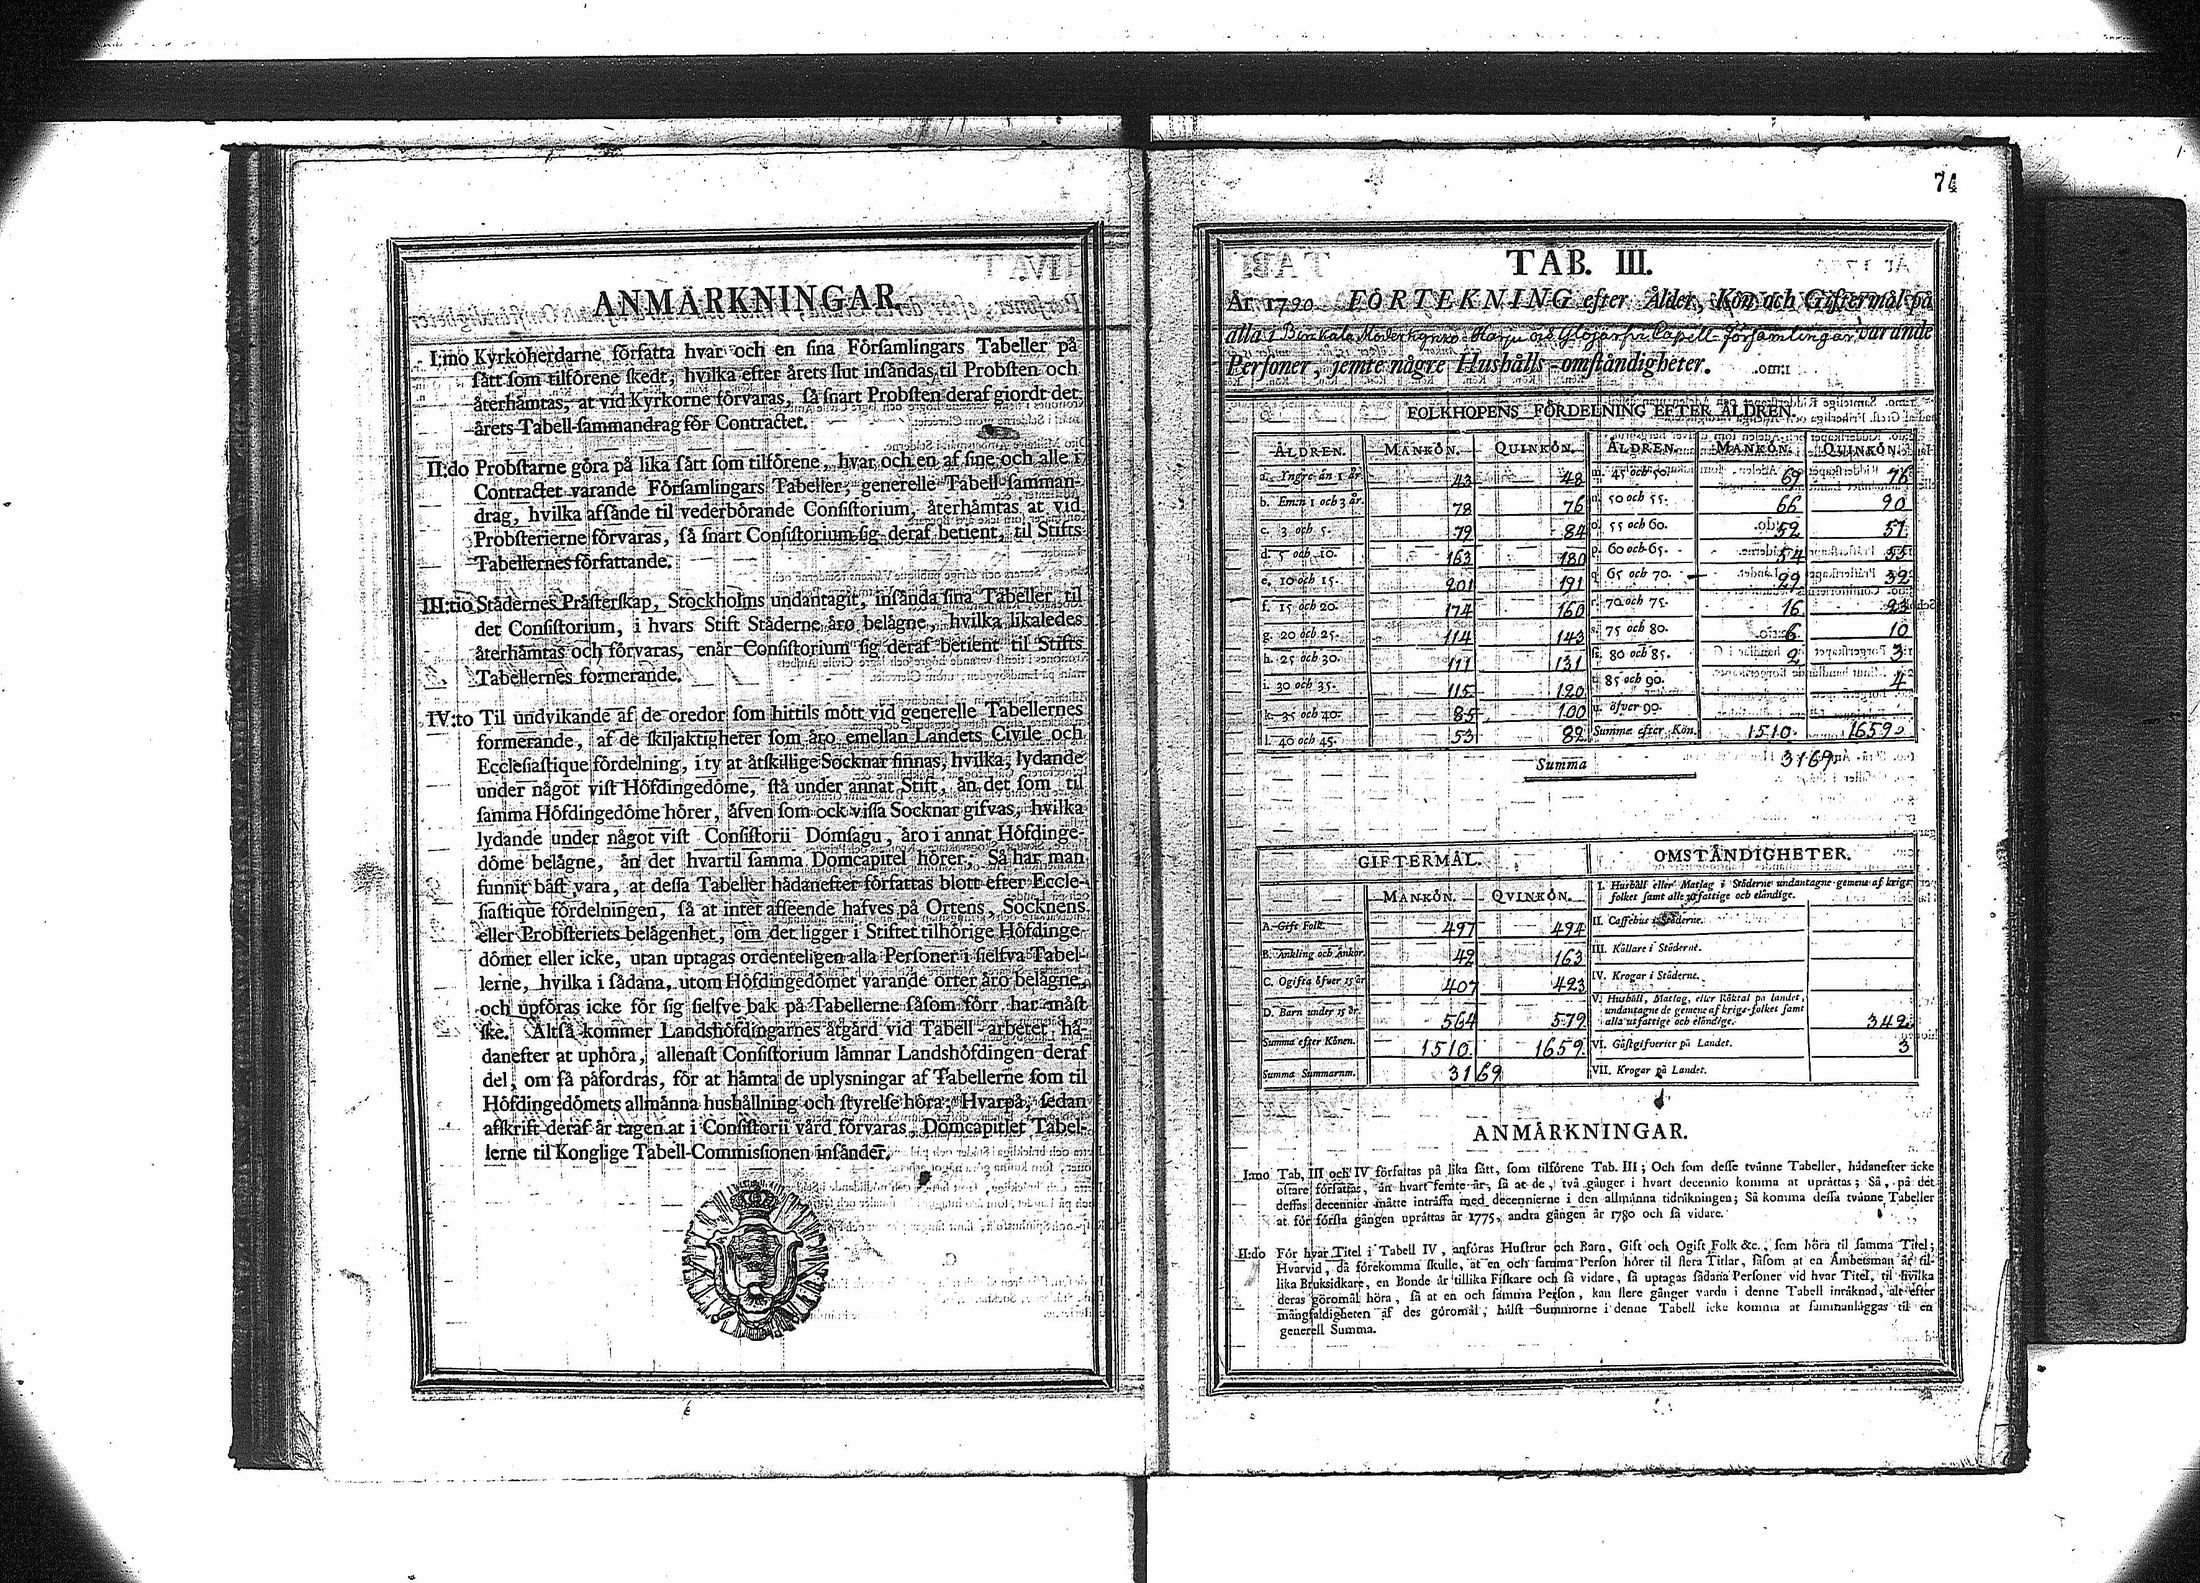 ANMÄRKNINGAR.
I:mo Kyrkoherdarne författa hvar och en sina Församlingars Tabeller på
sätt som tilförene skedt, hvilka efter årets slut insändas til Probsten och
återhämtas, at vid Kyrkorne förvaras, så snart Probsten deraf giordt det
årets Tabell-sammandrag för Contractet.
II:do Probstarne göra på lika sätt som tilförene, hvar och en af sine och alle i
Contractet varande Församlingars Tabeller, generelle Tabell-samman-
drag, hvilka afsände til vederbörande Consistorium, återhämtas at vid
Probsterierne förvaras, så snart Consistorium sig deraf betient, til Stifts
Tabellernes författande.
III:tio Städernes Prästerskap, Stockholms undantagit, insända sina Tabeller til
det Consistorium, i hvars Stift Städerne äro belägne, hvilka likaledes
återhämtas och förvaras, enär Consistorium sig deraf betient til Stifts
Tabellernes formerande.
IV:to Til undvikande af de oredor som hittils mött vid generelle Tabellernes
formerande, af de skiljaktigheter som äro emellan Landets Civile och
Ecclesiastique fördelning, i ty at åtskillige Socknar finnas, hvilka, lydande
under något vist Höfdingedöme, stå under annat Stift, än det som til
samma Höfdingedöme hörer, äfven som ock vissa Socknar gifvas, hvilka
lydande under något vist Consistorii Domsagu, äro i annat Höfdinge-
döme belägne, än det hvartil samma Domcapitel hörer, Så har man
funnit bäst vara, at dessa Tabeller hädanefter författas blott efter Eccle-
siastique fördelningen, så at intet afseende hafves på Ortens, Socknens
eller Probsteriets belägenhet, om det ligger i Stiftet tilhörige Höfdinge-
dömet eller icke, utan uptagas ordenteligen alla Personer i sielfva Tabel-
lerne, hvilka i sådana, utom Höfdingedömet varande orter äro belägne,
och upföras icke för sig sielfve bak på Tabellerne såsom förr har måst
ske. Altså kommer Landshöfdingarnes åtgärd vid Tabell-arbetet, hä-
danefter at uphöra, allenast Consistorium lämnar Landshöfdingen deraf
del, om så påfordras, för at hämta de uplysningar af Tabellerne som til
Höfdingedömets allmänna hushållning och styrelse höra; Hvarpå, sedan
afskrift deraf är tagen at i Consistorii vård förvaras, Domcapitlet Tabel-
lerne til Konglige Tabell-Commissionen insänder.
74
TAB. III.
År 1790. FÖRTEKNING efter Ålder, Kön och Giftermål på
alla i Birkala Moderkyrko Harju och Ylöjärfvi Capell-Församlingar varande
Personer, jemte några Hushålls-omständigheter.
FOLKHOPENS FÖRDELNING EFTER ÅLDREN.
ÅLDREN. MANKÖN. QUINKÖN. ÅLDREN. MANKÖN. QUINKÖN.
a. Yngre än 1 år. 43 48 m. 45 och 50. 69 76
b. Emn 1 och 3 år. 78 76 n. 50 och 55. 66 90
c. 3 och 5. 79 84 o. 55 och 60. 52 51
d. 5 och 10. 163 180 p. 60 och 65. 54 55
e. 10 och 15. 201 191 q. 65 och 70. 29 32
f. 15 och 20. 174 160 r. 70 och 75. 16 23
g. 20 och 25. 114 143 s. 75 och 80. 6 10
h. 25 och 30. 111 131 80 och 85. 2 3
i. 30 och 35. 115 120 t. 85 och 90. 4
k. 35 och 40. 85 100 u. öfver 90.
l. 40 och 45. 53 82 Summa efter Kön. 1510. 1659.
Summa 3169
GIFTERMÅL. OMSTÄNDIGHETER.
MANKÖN. QVINKÖN. I. Hushåll eller Matlag i Städerne undantagne gemene af krigs-
folket samt alle utfattige och eländige.
A. Gift Folk. 497 494 II. Caffehus i Städerne.
B. Änkling och Änkor. 42 163 III. Källare i Städerne.
C. Ogifta öfver 15 år 407 423 IV. Krogar i Städerne.
D. Barn under 15 år. 564 579 V. Hushåll, Matlag, eller Röktal på landet,
undantagne de gemene af krigs-folket samt
alla utfattige och eländige. 342
Summa efter Könen. 1510 1659 VI. Gästgifverier på Landet. 3
Summa Summarum. 3169 VII. Krogar på Landet.
ANMÄRKNINGAR.
I:mo Tab. III och IV författas på lika sätt, som tilförene Tab. III; Och som desse tvänne Tabeller, hädanefter icke
oftare författas, än hvart femte år, så at de, två gånger i hvart decennio komma at uprättas; Så, på det
dessas decennier måtte inträffa med decennierne i den allmänna tidräkningen; Så komma dessa tvänne Tabeller
at för första gången uprättas år 1775, andra gången år 1780 och så vidare.
II:do För hvar Titel i Tabell IV, anföras Hustrur och Barn, Gift och Ogift Folk &c., som höra til samma Titel;
Hvarvid, då förekomma skulle, at en och samma Person hörer til flera Titlar, såsom at en Ämbetsman är til-
lika Bruksidkare, en Bonde är tillika Fiskare och så vidare, så uptagas sådana Personer vid hvar Titel, til hvilka
deras göromål höra, så at en och samma Person, kan flere gånger varda i denne Tabell inräknad, alt efter
mångfaldigheten af des göromål, hälst Summorne i denne Tabell icke komma at sammanläggas til en
generell Summa.